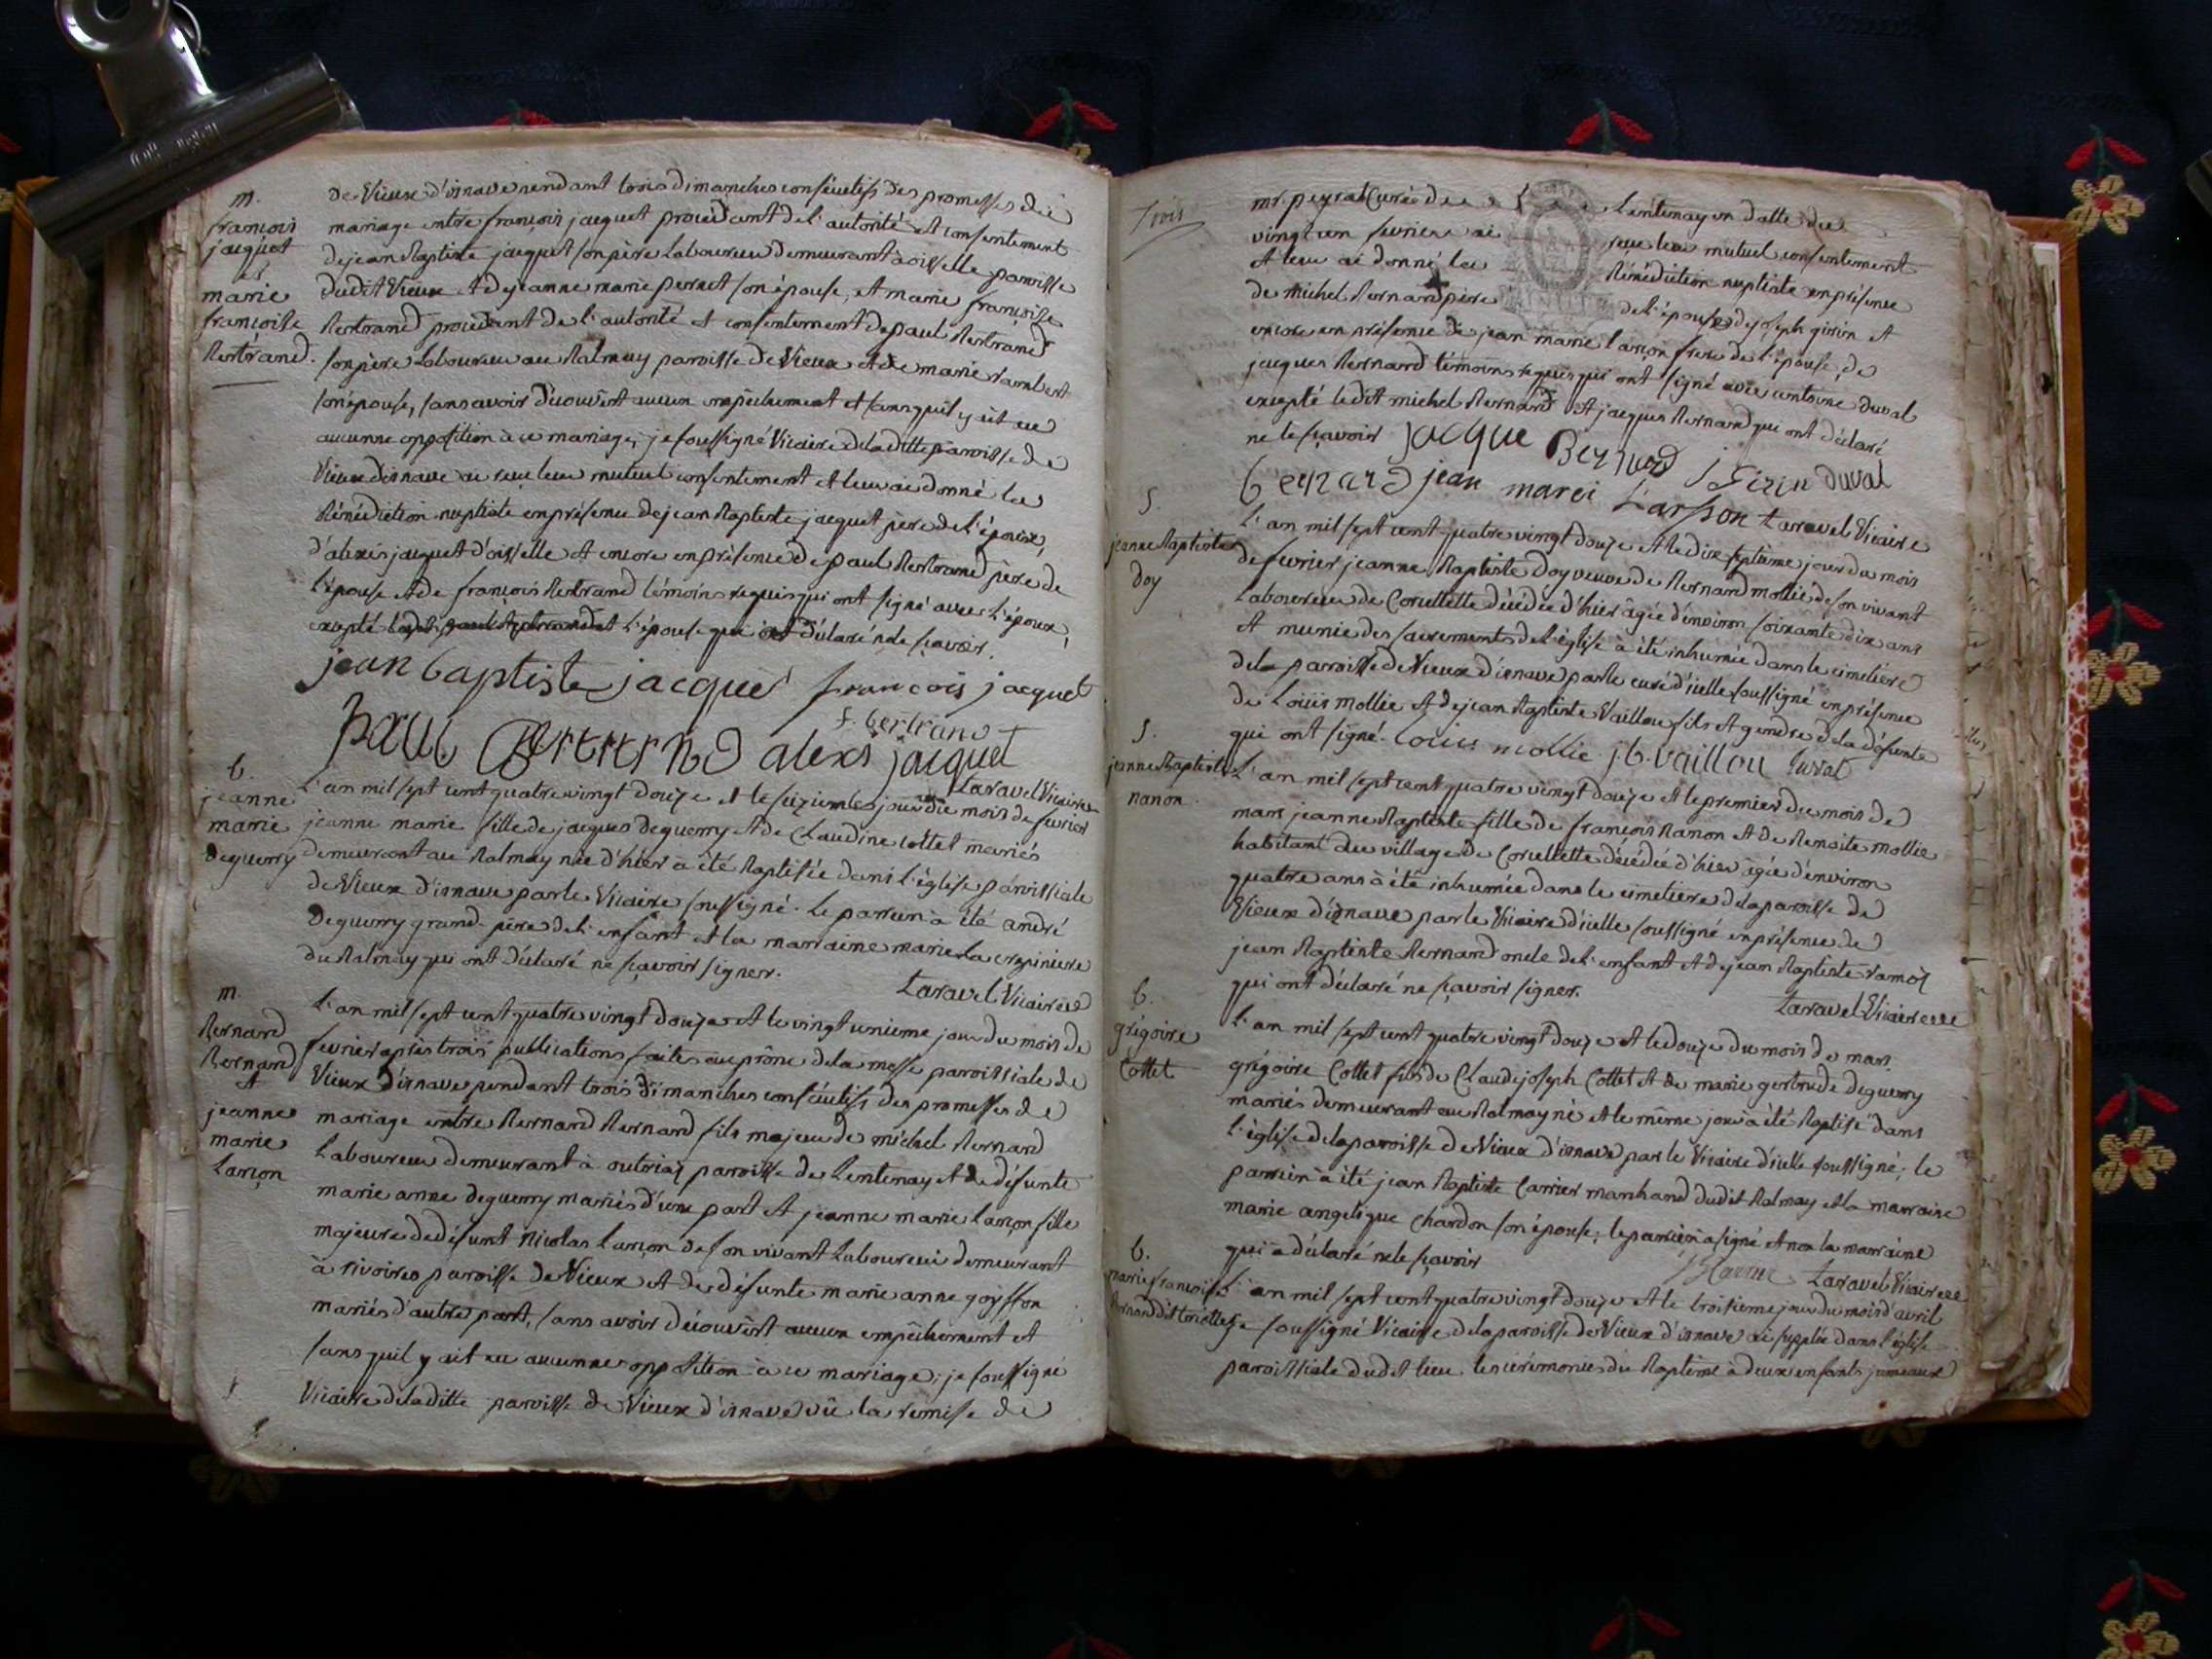 m.
françois
jacquet
et
marie
françoise
Bertrand.
de Vieux d'isnave pendant trois dimanches consécutifs des promesses de
mariage entre françois jacquet procedant de l'autorité et consentement
de jean Baptiste jacquet son père Laboureur demeurant à oisselle paroisse
dudit Vieux et de jeanne marie pernet son épouse, et marie françoise
Bertrand procedant de l'autorité et consentement de paul Bertrand
son père Laboureur au Balmay paroisse de Vieux et de marie rambert
son épouse, sans avoir découvert aucun empêchement et sans quil y ait eu
aucunne opposition à ce mariage, je soussigné Vicaire de laditte paroisse de
Vieux d'isnave ai reçu leur mutuel consentement et leur ai donné la
Bénédiction nuptiale en présence de jean Baptiste jacquet père de l'époux,
d'alexis jacquet d'oisselle et encore en présence de paul Bertrand père de
l'épouse et de françois Bertrand témoins requis qui ont signé avec l'époux,
excepté l'épouse qui a déclaré ne le sçavoir.
jean baptiste jacquet françois jacquet
f. bertrand
paul Bertrand alexis jacquet
Taravel Vicaire
b.
jeanne
marie
deguerry
L'an mil sept cent quatre vingt douze et le sezieme jour du mois de fevrier
jeanne marie fille de jacques deguerry et de Claudine cottet mariés
demeurant au Balmay née d'hier à été Baptisée dans l'église paroissiale
de Vieux d'isnave par le Vicaire soussigné. Le parrein à été andré
deguerry grand-père de l'enfant et la marraine marie La
du Balmay qui ont déclaré ne sçavoir signer.
Taravel Vicaire
m.
Bernard
Bernard
et
jeanne
marie
Larçon
L'an mil sept cent quatre vingt douze et le vingt unieme jour du mois de
fevrier après trois publications faites au prône de la messe paroissiale de
Vieux d'isnave pendant trois dimanches consécutifs des promesses de
mariage entre Bernard Bernard fils majeur de michel Bernard
Laboureur demeurant à outriaz paroisse de Lentenay et de défunte
marie anne deguerry mariés d'une part et jeanne marie larçon fille
majeure de défunt Nicolas Larçon de son vivant Laboureur demeurant
à rivoires paroisse de Vieux et de défunte marie anne goysson
mariés d'autre part, sans avoir découvert aucun empêchement et
sans quil y ait eu aucunne opposition à ce mariage; je soussigné
Vicaire de laditte paroisse de Vieux d'isnave vû la remise de
Trois
mr. peyrat Curé de Lentenay en datte du
vingt un fevrier ai reçu leur mutuel consentement
et leur ai donné la Bénédiction nuptiale en présence
de michel Bernard père de l'époux, de joseph girin et
encore en présence de jean marie larçon frere de l'épouse, de
jacques Bernard témoins requis qui ont signé avec duval
excepté ledit michel Bernard et jacques Bernard qui ont déclaré
ne le sçavoir jacque Bernard j Girin duval
bernard jean marei Larson Taravel Vicaire
S.
jeanne Baptiste
Doy
L'an mil sept cent quatre vingt douze et le dix septieme jour du mois
de fevrier jeanne Baptiste Doy veuve de Bernard mollie de son vivant
Laboureur de Corcellette décédée d'hier âgée d'environ soixante dix ans
et munie des sacrements de l'église à été inhumée dans le cimetiere
de la paroisse de Vieux d'isnave par le curé d'icelle soussigné en présence
de Louis mollie et de jean Baptiste Vaillou fils et gendre de la défunte
qui ont signé. Louis mollie j.b. vaillou duval
S.
jeanne Baptiste
nanon.
L'an mil sept cent quatre vingt douze et le premier du mois de
mars jeanne Baptiste fille de françois Nanon et de Benoite mollie
habitant du village de Corcellette décédée d'hier âgée d'environ
quatre ans à été inhumée dans le cimetiere de la paroisse de
Vieux d'isnave par le Vicaire d'icelle soussigné en présence de
jean Baptiste Bernard oncle de l'enfant et de jean Baptiste ramoz
qui ont déclaré ne sçavoir signer.
Taravel Vicaire
b.
grégoire
Cottet
L'an mil sept cent quatre vingt douze et le douze du mois de mars
grégoire Cottet fils de Claude joseph Cottet et de marie gertrude deguerry
mariés demeurant au Balmay né et le même jour à été Baptisé dans
l'église de la paroisse de Vieux d'isnave par le Vicaire d'icelle soussigné; le
parrein à été jean Baptiste Carrier marchand dudit Balmay et la marraine
marie angelique Chardon son épouse; le parrein a signé et non la marraine
qui a déclaré ne le sçavoir
Taravel Vicaire
b.
marie françoise
Bernard dit Corcellet
L'an mil sept cent quatre vingt douze et le troisieme jour du mois d'avril
je soussigné Vicaire de la paroisse de Vieux d'isnave ai supplée dans l'église
paroissiale dudit lieu les cérémonies du Baptême à deux enfants jumeaux